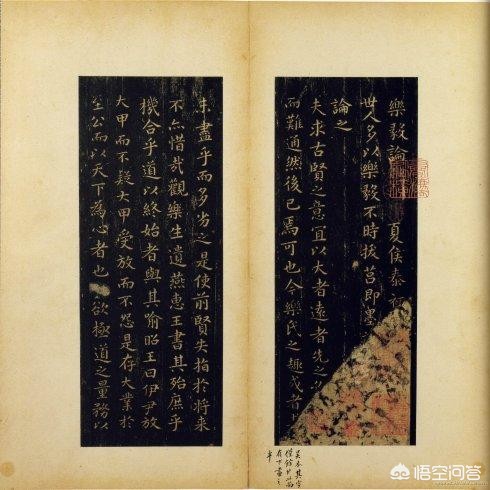 樂毅論 夏侯泰
世人多以樂毅不時拔莒即墨
論之
夫求古賢之意宜以大者遠者先之
而難通然後已焉可也今樂氏之趣或者
未盡乎而多劣之是使前賢失指於将来
不亦惜哉觀樂生遺燕惠王書其殆庶乎
機合乎道以終始者與其喻昭王曰伊尹放
大甲而不疑大甲受放而不怨是存大業於
至公而以天下為心者也 欲極道之量務以
悟空问答